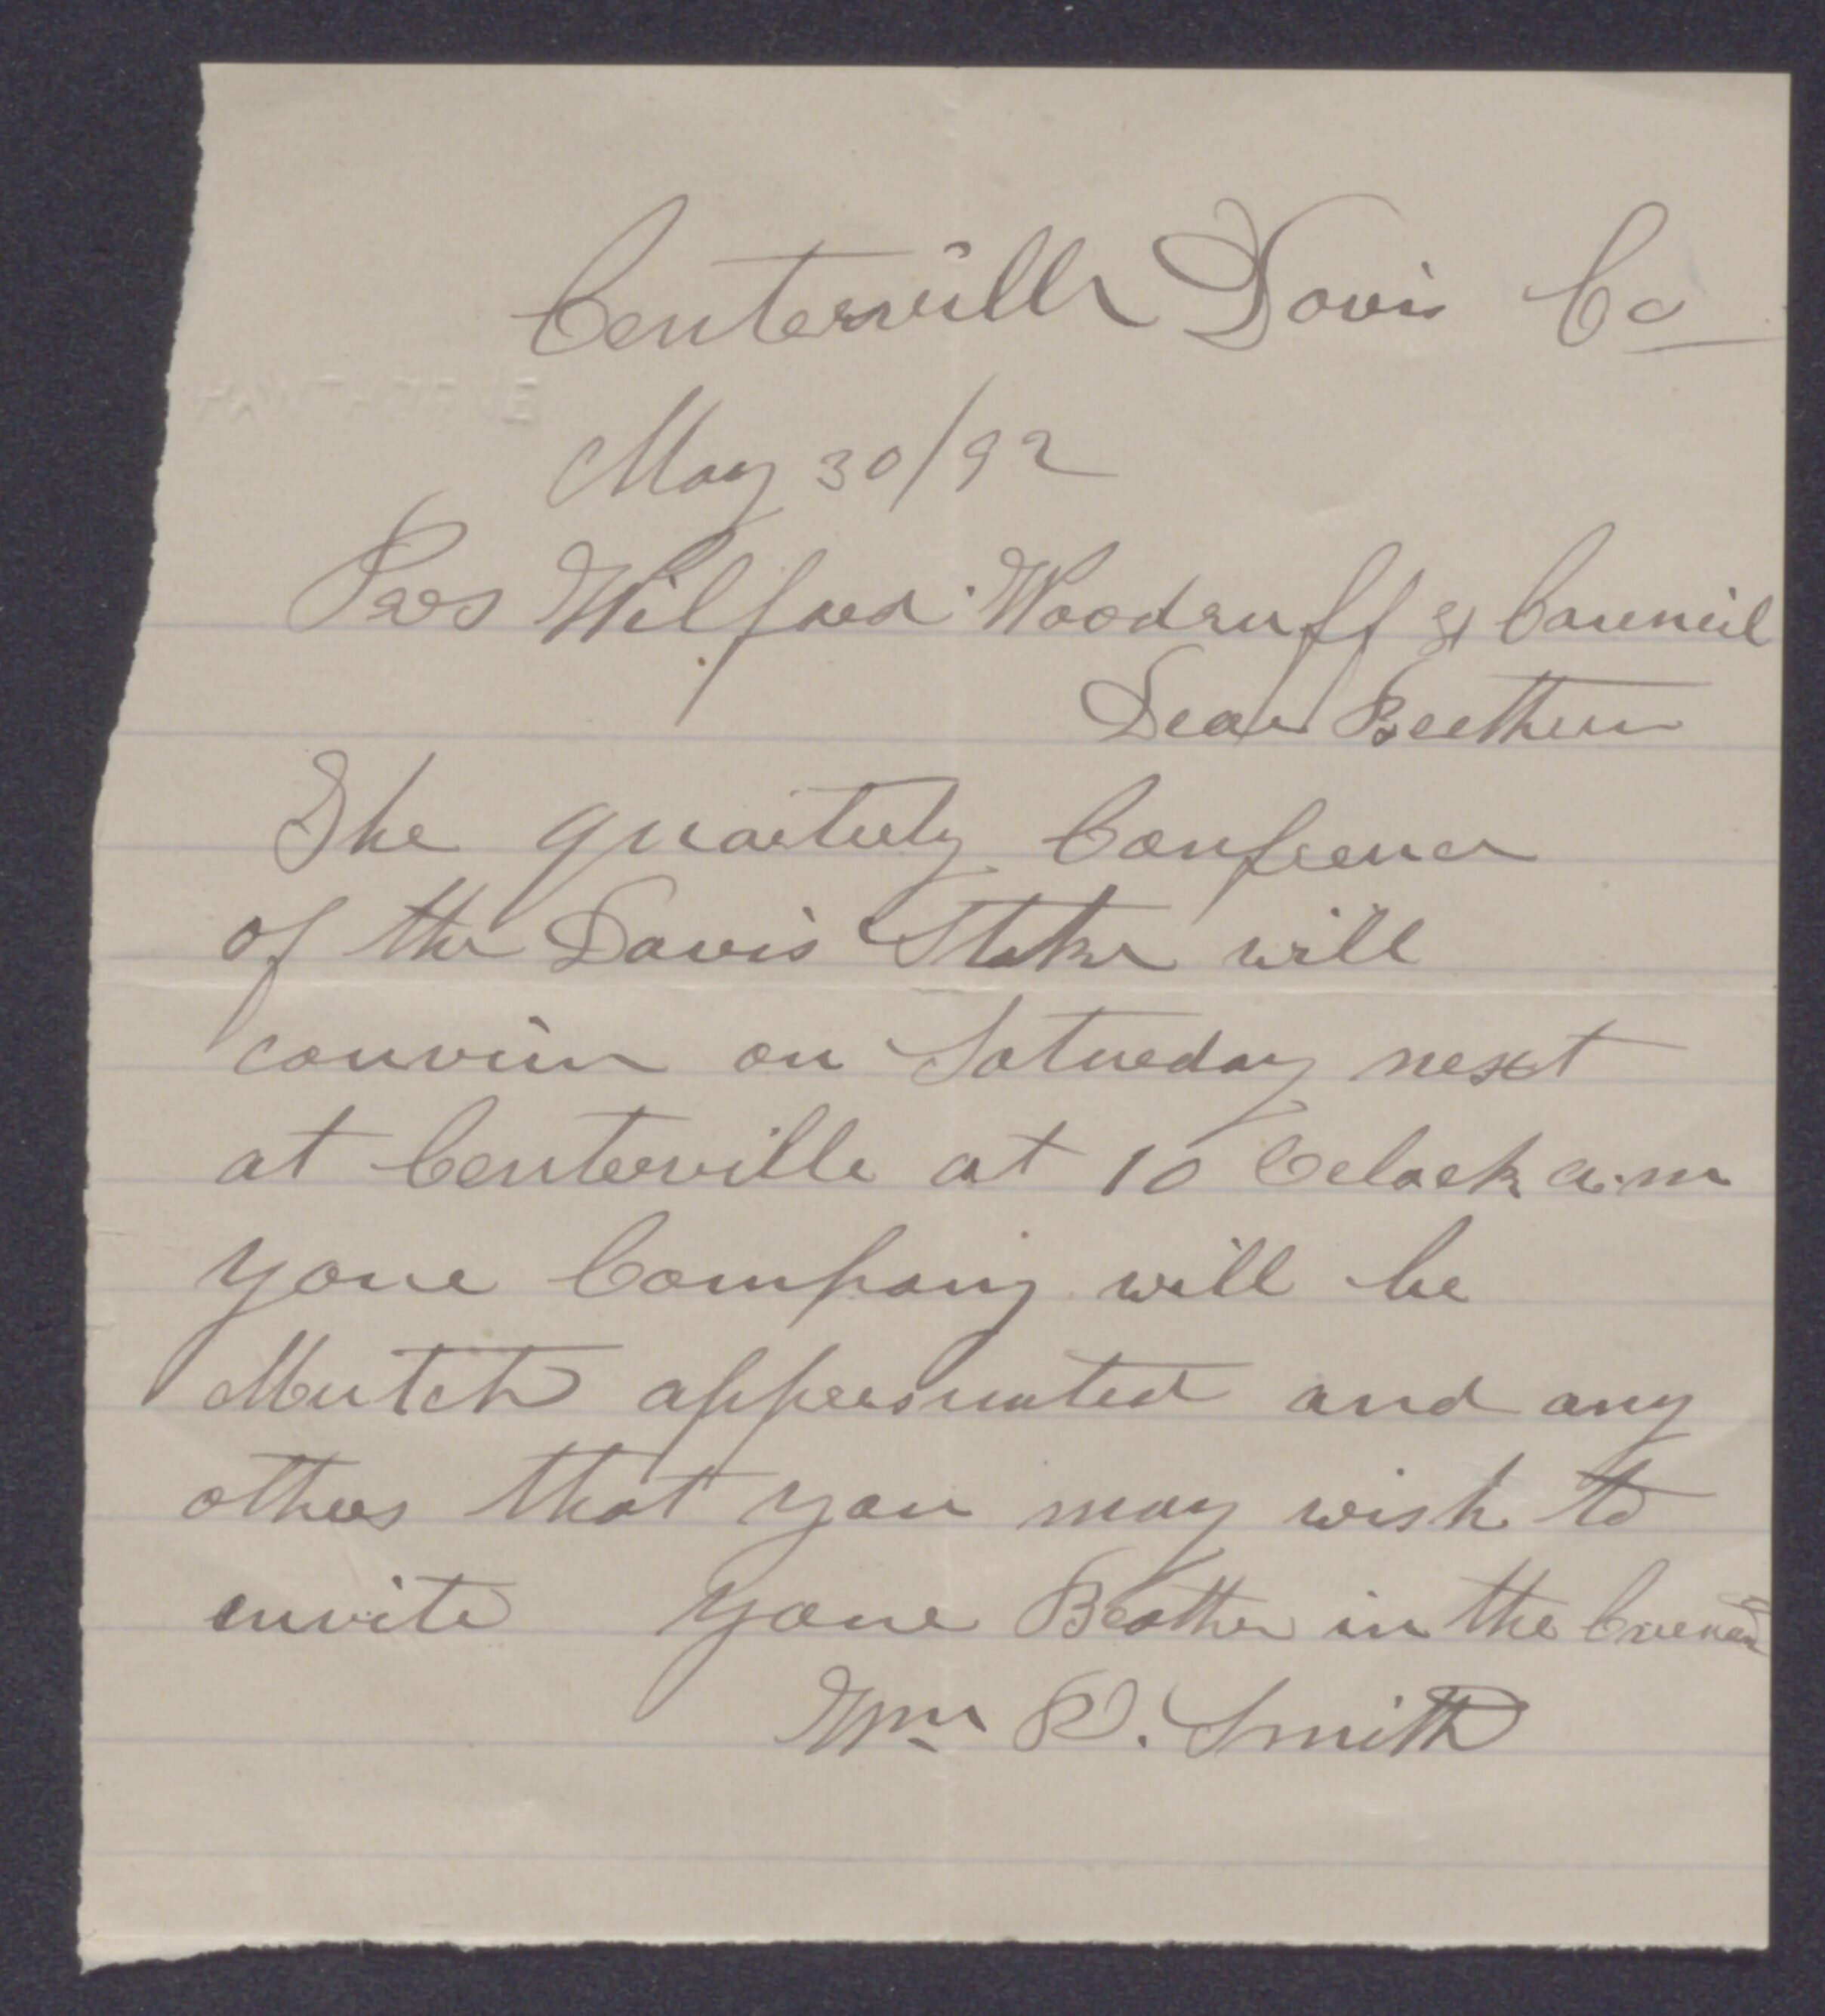 Centerville Davis Co
HAWTHORNE
May 30/92
Pres Wilford Woodruff & Council
Dear Brethern
The quarterly Conference
of the Davis Stake will
convein on Saturday next
at Centerville at 10 Oclock a.m
your Company will be
Mutch appresiated and any
others that you may wish to
envite your Brother in the Covenant
Wm R. Smith